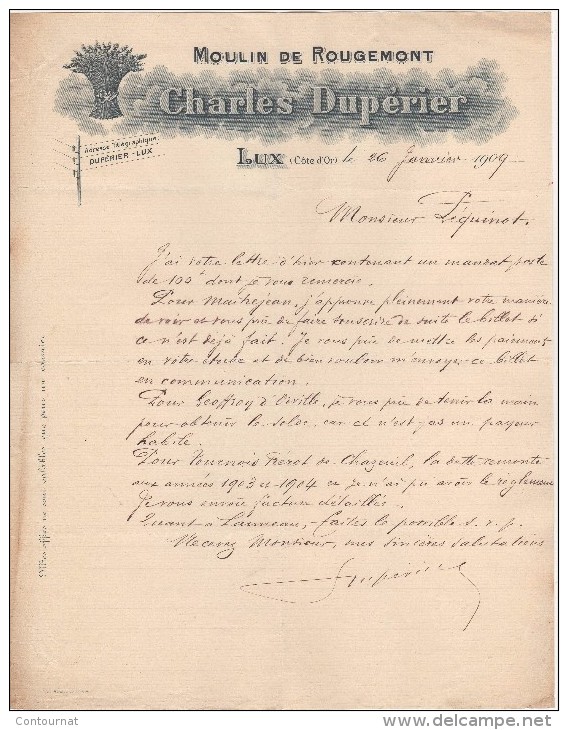 MOULIN DE ROUGEMONT
Charles Dupérier
Adresse Télégraphique
DUPÉRIER-LUX
LUX (Côte d'Or) le 26 Janvier 1909
Monsieur Péquinot.
J'ai votre lettre d'hier contenant un mandat poste
de 100f dont je vous remercie.
Pour Maitrejean, j'approuve pleinement votre manière
de voir et vous prie de faire de suite le billet si
ce n'est déjà fait. Je vous prie de mettre les paiements
en votre étude et de bien vouloir m'envoyer ce billet
en communication.
Pour Geoffroy d'Orville, je vous prie de tenir la main
pour obtenir le solde, car ce n'est pas un payeur
habile.
Pour Férot de Chazeuil, la dette remonte
aux années 1903 et 1904 et je n'ai pu avoir le règlement
Je vous envoie facture détaillée.
Quant à faites le possible s.v.p.
Recevez Monsieur, mes sincères salutations
Dupérier
Mes offres ne sont valables que pour un courrier.
Contournat
delcampe.net